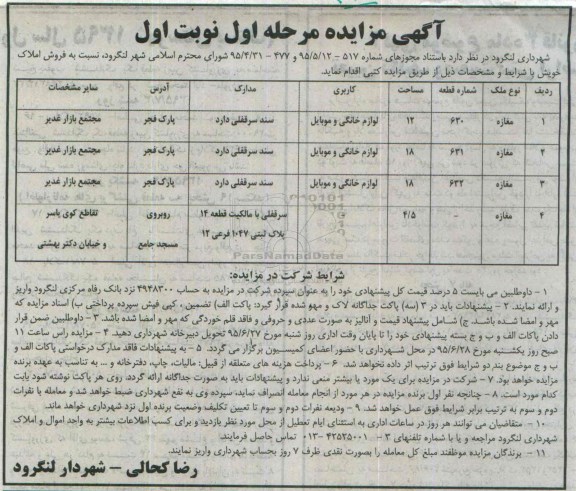 آگهی مزایده مرحله اول نوبت اول
شهرداری لنگرود در نظر دارد باستناد مجوزهای شماره ۵۱۷ – ۹۵/۵/۱۲ و ۴۷۷ – ۹۵/۴/۳۱ شورای محترم اسلامی شهر لنگرود، نسبت به فروش املاک
خویش با شرایط و مشخصات ذیل از طریق مزایده کتبی اقدام نماید.
ردیف نوع ملک شماره قطعه مساحت کاربری مدارک آدرس سایر مشخصات
۱ مغازه ۶۳۰ ۱۲ لوازم خانگی و موبایل سند سرقفلی دارد پارک فجر مجتمع بازار غدیر
۲ مغازه ۶۳۱ ۱۸ لوازم خانگی و موبایل سند سرقفلی دارد پارک فجر مجتمع بازار غدیر
۳ مغازه ۶۳۲ ۱۸ لوازم خانگی و موبایل سند سرقفلی دارد پارک فجر مجتمع بازار غدیر
۴ مغازه - ۴/۵ سرقفلی با مالکیت قطعه ۱۴ روبروی تقاطع کوی یاسر
پلاک ثبتی ۱۰۴۷ فرعی ۱۲ مسجد جامع و خیابان دکتر بهشتی
شرایط شرکت در مزایده:
۱ – داوطلبین می بایست ۵ درصد قیمت کل پیشنهادی خود را به عنوان سپرده شرکت در مزایده به حساب ۴۹۳۸۳۰۰ نزد بانک رفاه مرکزی لنگرود واریز
و ارائه نمایند. ۲ – پیشنهادات باید در ۳ (سه) پاکت جداگانه لاک و مهر شده قرار گیرد: پاکت الف) تضمین ، کپی فیش سپرده پرداختی ب) اسناد مزایده که
مهر و امضا شده باشد. ج) شامل پیشنهاد قیمت و آنالیز به صورت عددی و حروفی و فاقد قلم خوردگی که مهر و امضا شده باشد. ۳ – داوطلبین ضمن قرار
دادن پاکات الف و ب و ج بسته پیشنهادی خود را تا پایان وقت اداری روز شنبه مورخ ۹۵/۶/۲۷ تحویل دبیرخانه شهرداری دهید. ۴ – مزایده راس ساعت ۱۱
صبح روز یکشنبه مورخ ۹۵/۶/۲۸ در محل شهرداری با حضور اعضای کمیسیون برگزار می گردد. ۵ – به پیشنهادات فاقد مدارک درخواستی پاکات الف و
ب و ج موضوع بند دو شرایط فوق ترتیب اثر داده نخواهد شد. ۶ – پرداخت هزینه های متعلقه از قبیل: مالیات، چاپ، دفترخانه و ... به تناسب به عهده برنده
مزایده خواهد بود. ۷ – شرکت در مزایده برای یک مورد یا بیشتر منعی ندارد و پیشنهادات باید به صورت جداگانه ارائه گردد، روی هر پاکت نوشته شود بابت
کدام مورد است. ۸ – چنانچه نفر اول برنده مزایده در هر مورد از انجام معامله انصراف نماید، سپرده وی به نفع شهرداری ضبط خواهد شد و معامله با نفرات
دوم و سوم به ترتیب برابر شرایط فوق عمل خواهد شد. ۹ – ودیعه نفرات دوم و سوم تا تعیین تکلیف وضعیت برنده اول نزد شهرداری خواهد ماند.
۱۰ – متقاضیان می توانند هر روز در ساعات اداری به استثنای ایام تعطیل از محل مورد نظر بازدید و برای کسب اطلاعات بیشتر به واحد اموال و املاک
شهرداری لنگرود مراجعه و یا با شماره تلفنهای ۳ – ۴۲۵۲۵۰۰۱ – ۰۱۳ تماس حاصل فرمایند.
۱۱ – برندگان مزایده موظفند مبلغ کل معامله را بصورت نقدی ظرف ۷ روز بحساب شهرداری واریز نمایند.
رضا کحالی – شهردار لنگرود